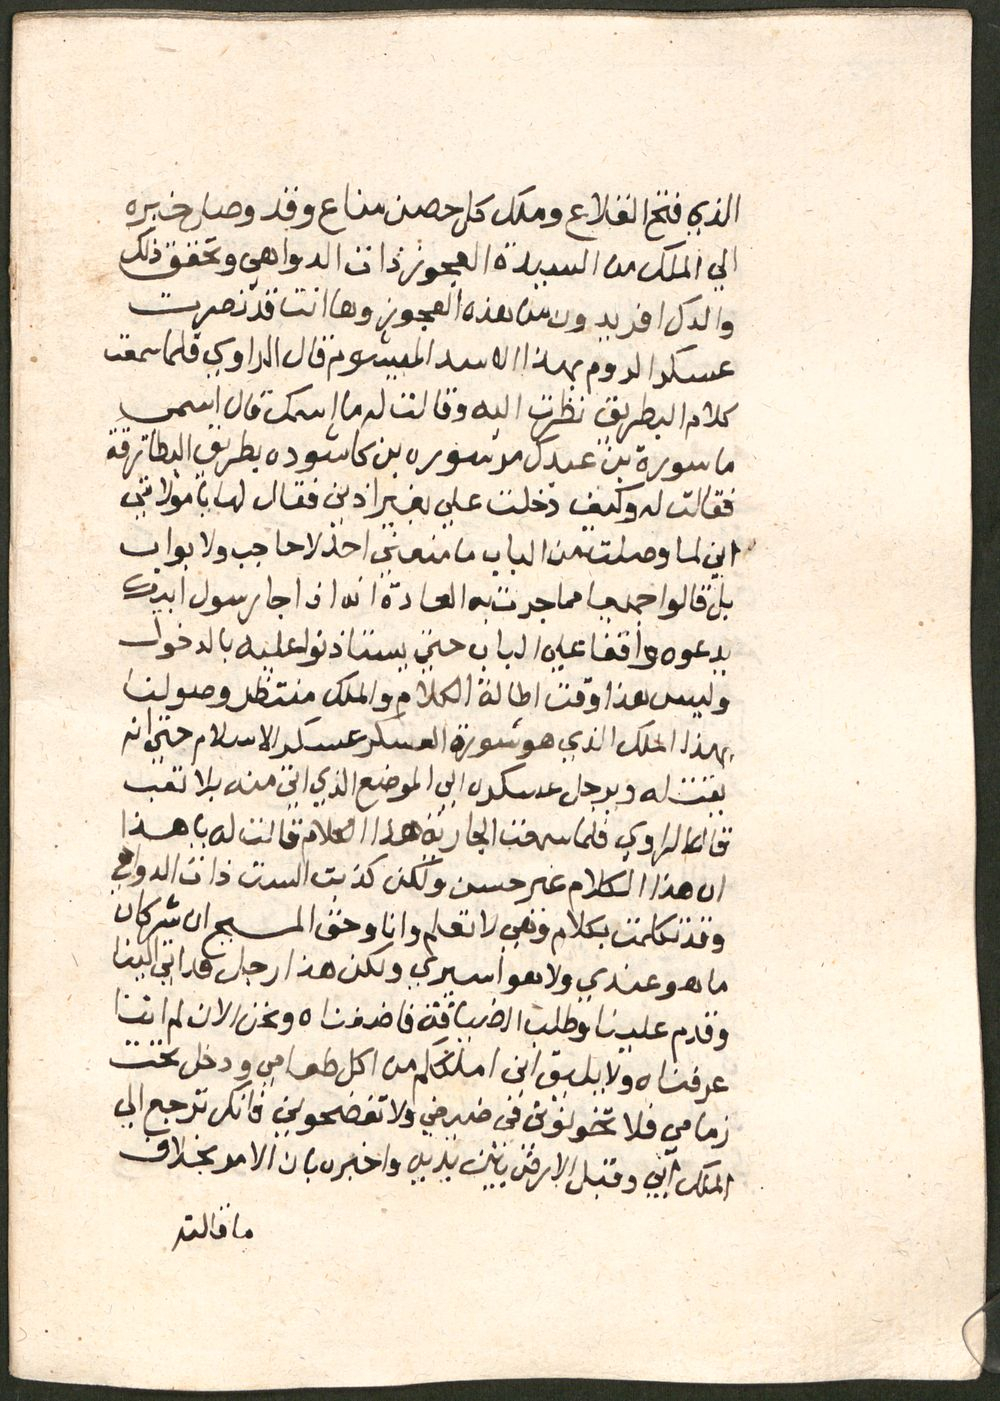 الذي فتح القلاع وملك كل حصن مناع وقد وصل خبره
الي الملك من السيدة العجوز ذات الدواهي وتحقق ذلك
والدك افريدون من هذه العجوز وها انت قد نصرت
عسكر الروم بهذا الاسد الميشوم قال الراوي فلما سمعت
كلام البطريق نظرت اليه وقالت له ما اسمك قال اسمي
ماسورة بن عبدك موسوره بن كاشوده بطريق البطاترقة
فقالت له وكيف دخلت علي بغير اذني فقال لها يا مولاتي
اني لما وصلت من الباب ما منعني احد لا حاجب ولا بواب
بل قالوا جميعا مما جرت به العادة انه اذا جا رسول ابيك
يدعوه واقفا علي الباب حتي يستاذنوا عليه بالدخول
وليس هذا وقت اطالة الكلام والملك منتظر وصولنا
بهذا الملك الذي هو شورة العسكر عسكر الاسلام حتي انه
يقتله ويرحل عسكره الي الموضع الذي اتي منه بلا تعب
قال الراوي فلما سمعت الجارية هذا الكلام قالت له يا هذا
ان هذا الكلام غير حسن ولكن كذبت الست ذات الدواهي
وقد تكلمت بكلام وهي لا تعلم وانا وحق المسيح ان شركان
ما هو عندي ولا هو اسيري ولكن هذا رجل قد اتي الينا
وقدم علينا وطلب الضيافة فاضفناه ونحن الان لم اننا
عرفناه ولا يليق اني املككم من اكل طعامي ودخل تحت
زمامي فلا تخونوني في ضيفي ولا تفضحوني فانك ترجع الي
الملك ابي وقبل الارض بين يديه واخبره بان الامر بخلاف
ما قالته